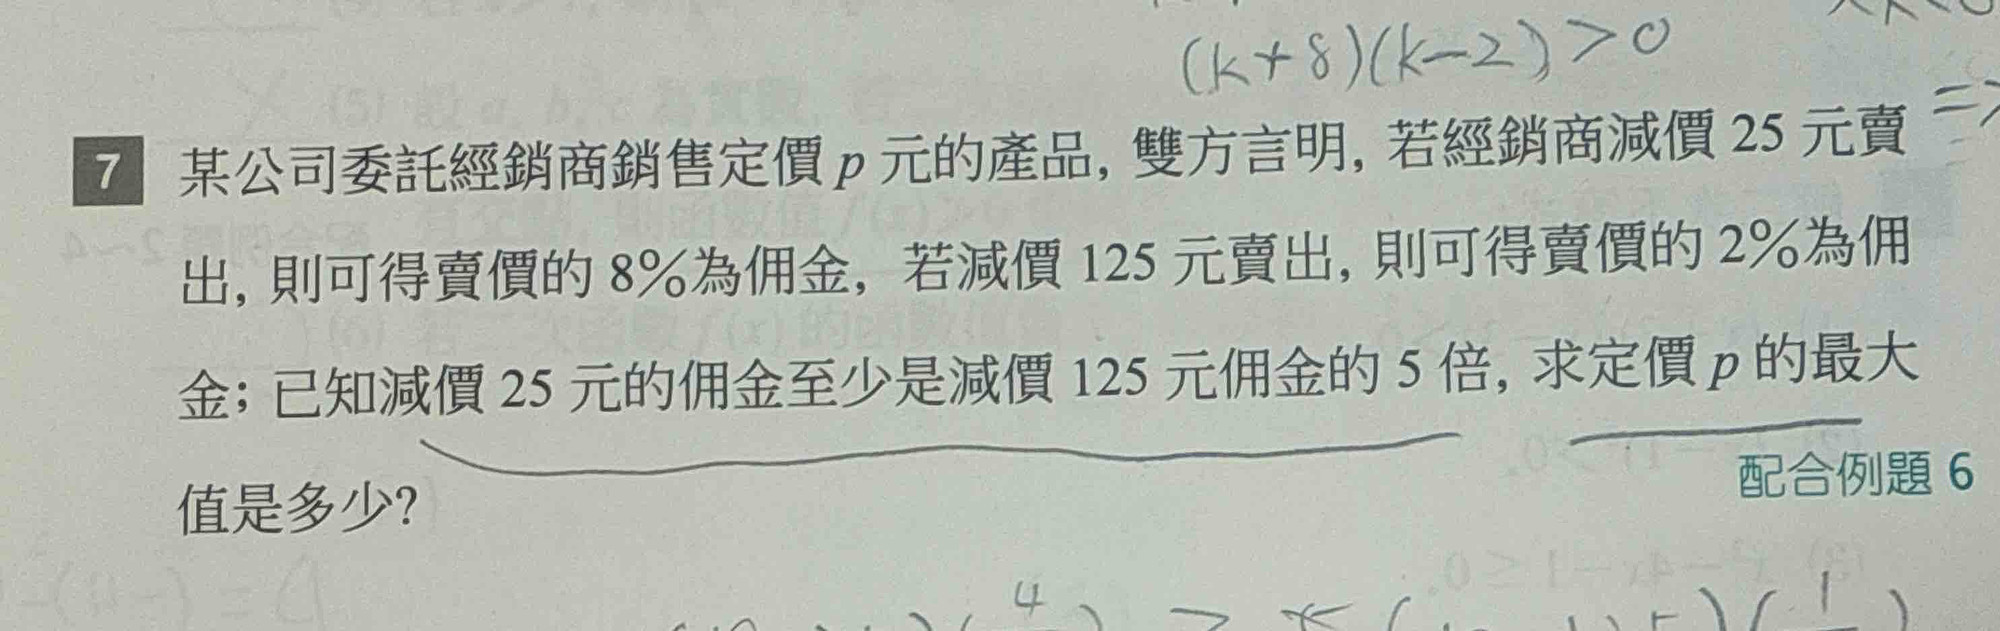 (k+8)(k-2)>0
7 某公司委託經銷商銷售定價 p 元的產品, 雙方言明, 若經銷商減價 25 元賣
出, 則可得賣價的 8%為佣金, 若減價 125 元賣出, 則可得賣價的 2%為佣
金; 已知減價 25 元的佣金至少是減價 125 元佣金的 5 倍, 求定價 p 的最大
值是多少?
配合例題 6